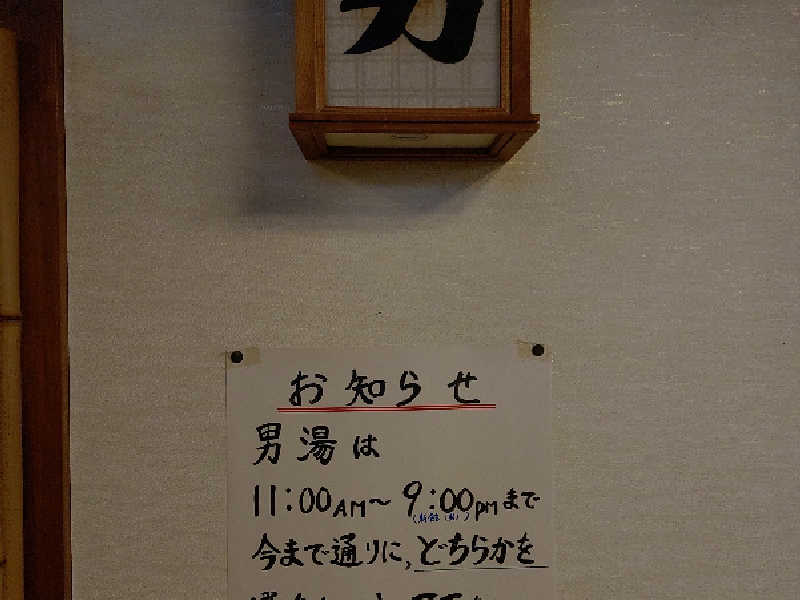 男
お知らせ
男湯は
11:00AM～9:00PMまで
今まで通りに、どちらかを